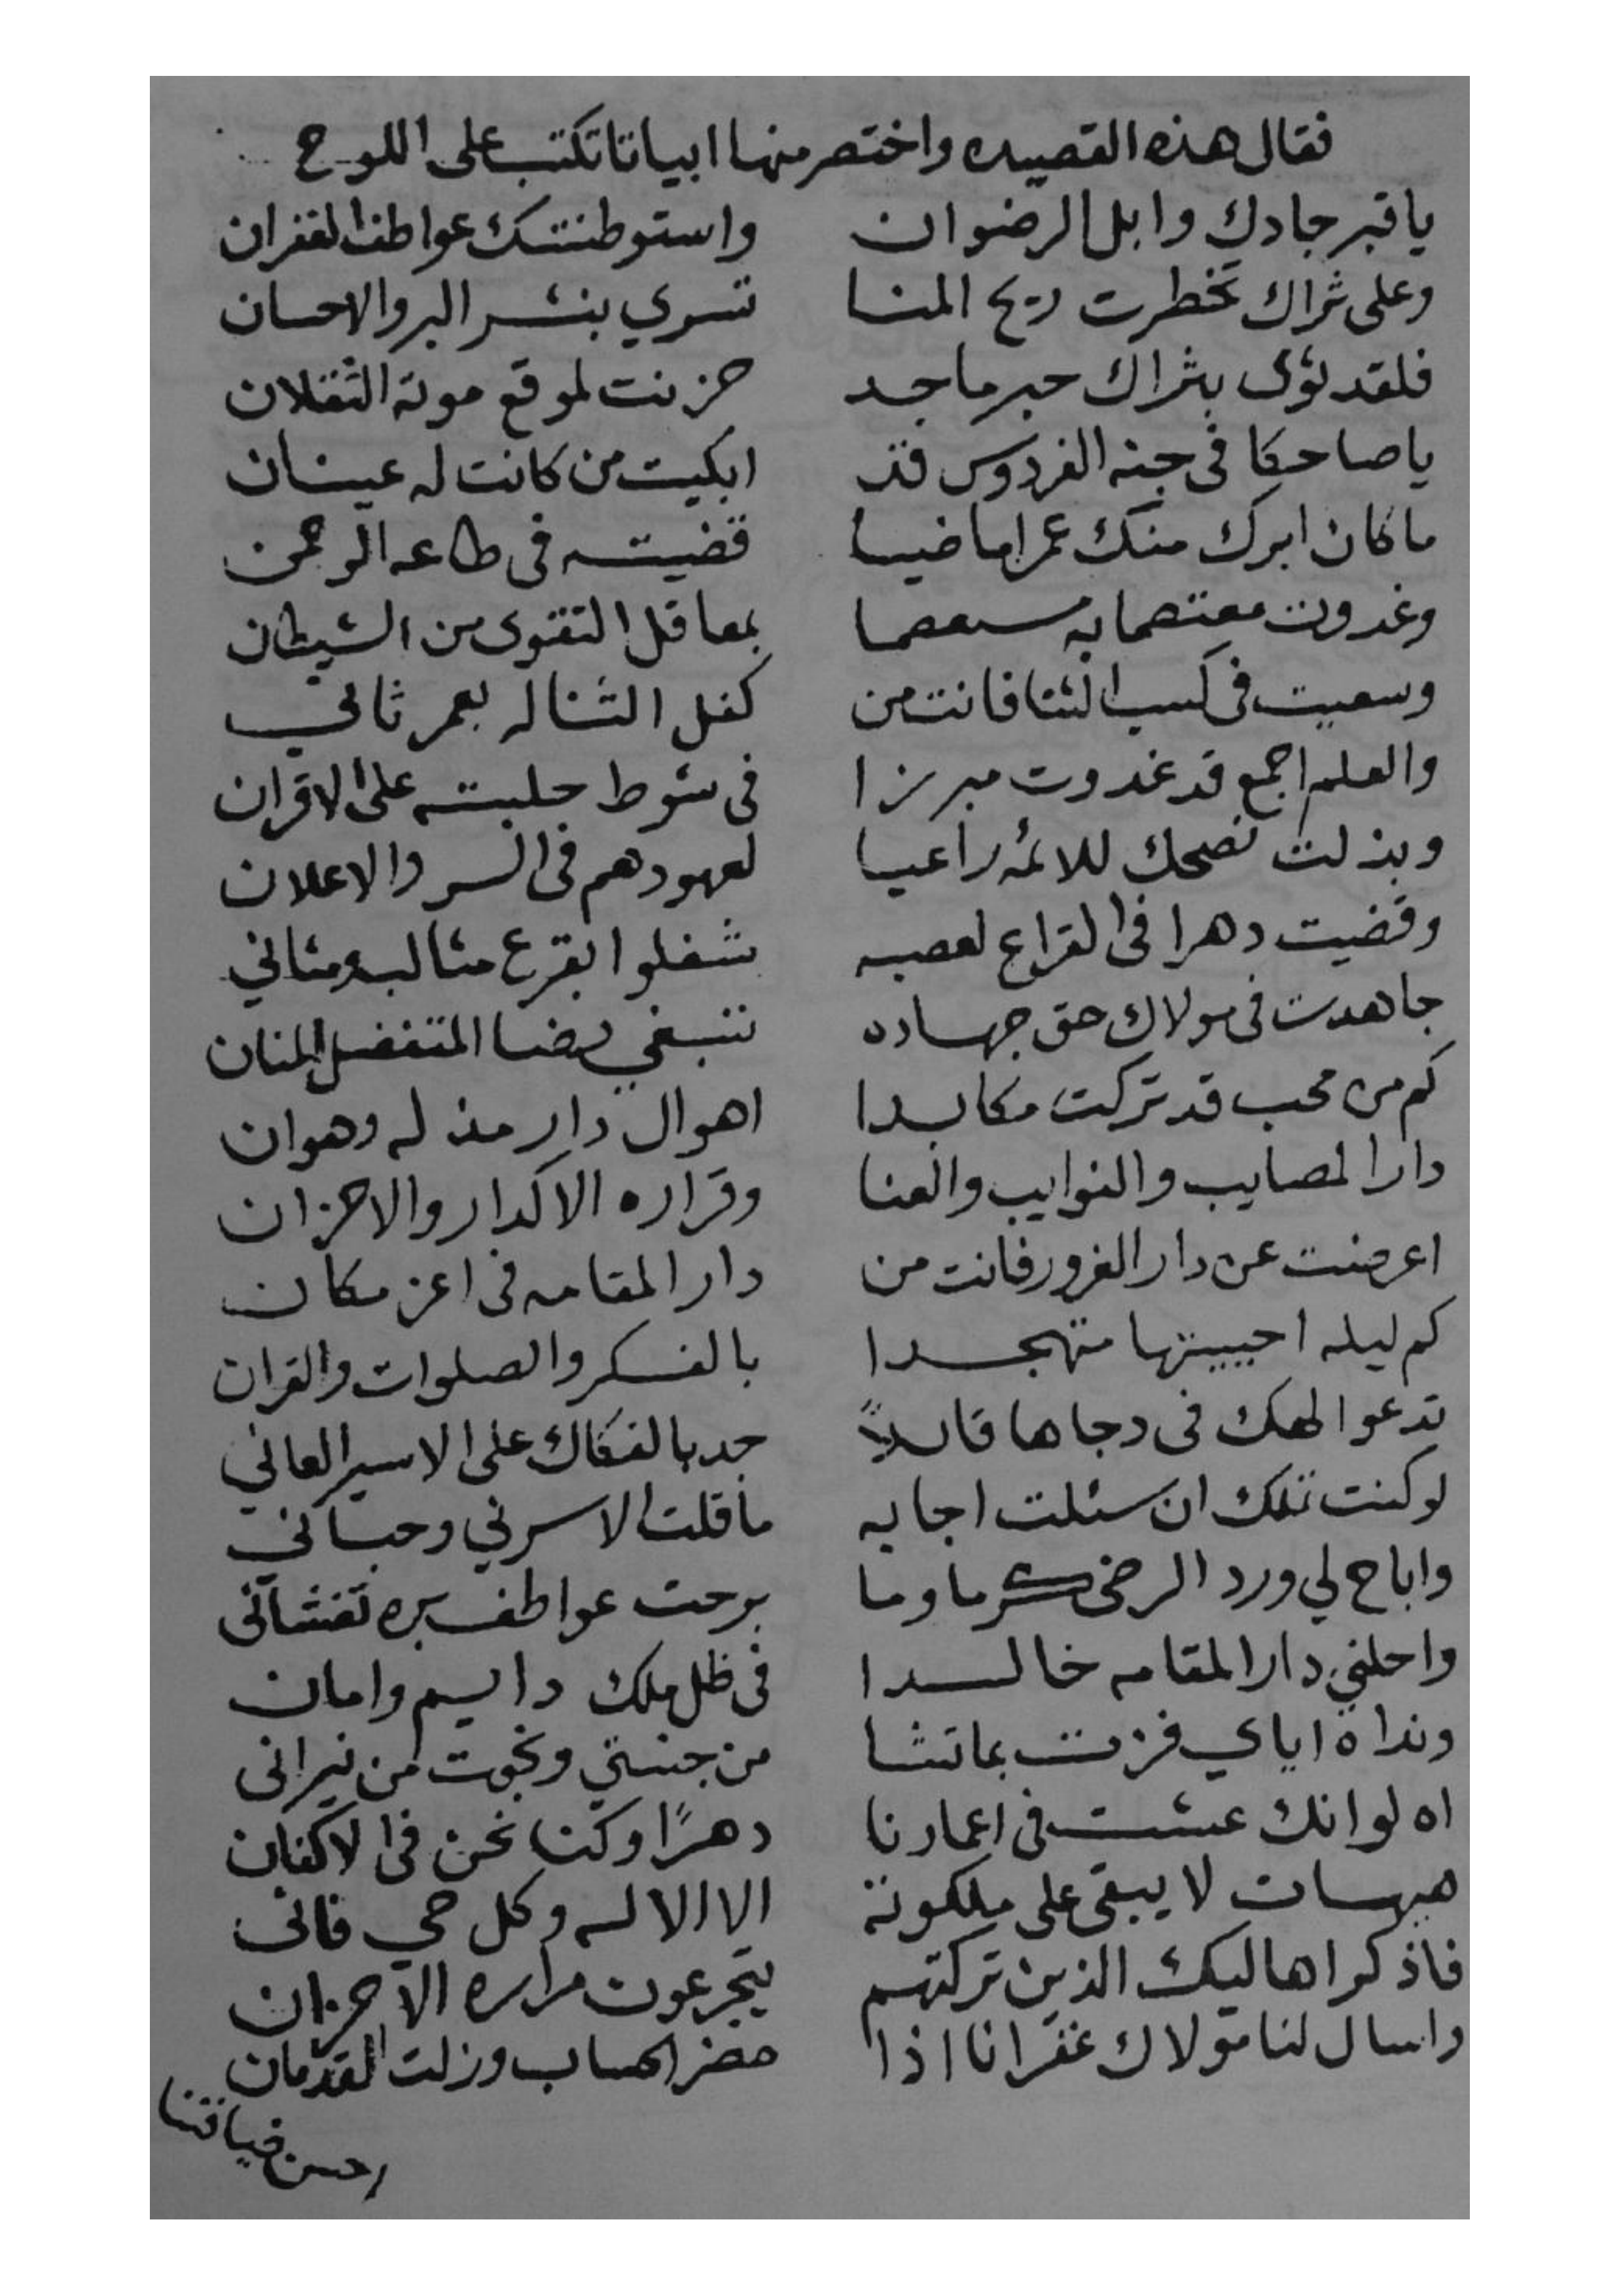 فقال هذه القصيده واختصر منها ابياتا تكتب على اللوح
ياقبر جادك وابل الرضوان واستوطنتك عواطف الغفران
وعلى ثراك تخطرت ريح المنا تسري بنشر البر والاحسان
فلقد ثوى بثراك حبر ماجد حزنت لموقع موته الثقلان
ياضاحكا فى جنه الفردوس قد ابكيت من كانت له عينان
ماكان ابرك منك عمرا ماضيا قضيته فى طاعه الرحمن
وغدوت معتصما به بمعاقل التقوى من الشيطان
وسعيت فى كسب الثنا فانت من كفل الثنا له بعمر ثاني
والعلم اجمع قد غدوت مبرزا فى شوط حلبته على الاقران
وبذلت نصحك للائمه راعيا لعهودهم فى السر والاعلان
وقضيت دهرا فى القراع لعصبه شغلوا بقرع مثالب ومثاني
جاهدت فى مولاك حق جهاده تبتغي رضا المتفضل المنان
كم من محب قد تركت مكابدا اهوال دار مذله وهوان
دار المصايب والنوايب والعنا وقراره الاكدار والاحزان
اعرضنت عن دار الغرور فانت من دار المقامه فى اعز مكان
كم ليله احييتها متهجدا بالفكر والصلوات والقران
تدعو الهك فى دجاها قايلاً جد بالفكاك على الاسير العاني
لو كنت تملك ان سئلت اجابه ماقلت الا سرني وحباني
واباح لي ورد الرضى كرما وما برحت عواطف بره تغشانى
واحلني دار المقامه خالدا فى ظل ملك دايم وامان
ونداه اياي فزت بماتشا من جنتي ونجوت من نيرانى
اه لو انك عشت فى اعمارنا دهرًا وكنا نحن فى الاكفان
هيهات لا يبقى على ملكوته الا الاله وكل حي فانى
فاذكر اهاليك الذين تركتهم يتجرعون مراره الاحزان
واسال لنا مولاك غفرانا اذا حضر الحساب وزلت القدمان
احسن ضيافتنا